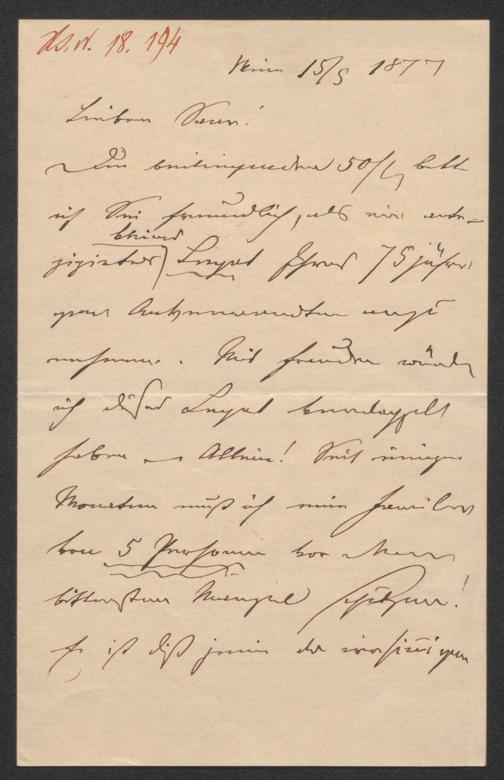 Hs. N. 18.194
Wien 15/5 1877
Lieber Baron!
Die beiliegenden 50 f bitte
ich Sie freundlich, als ein
kleines
Legat Ihres 75jähri
gen Anverwandten
nehmen. Mit Freuden würde
ich dieses Legat verdoppelt
haben – Allein! Seit einigen
Monaten muß ich eine Familie
von 5 Personen vor dem
bittersten Mangel schützen!
Es ist dieß jene der